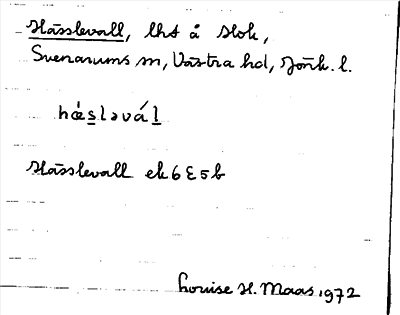 Hässlevall, lht å Hok,
Svenarums sn, Västra hd, Jönk. l.
hæ̀s̲ləvál̲
Hässlevall ek 6 E 5 b
Louise H. Maas 1972